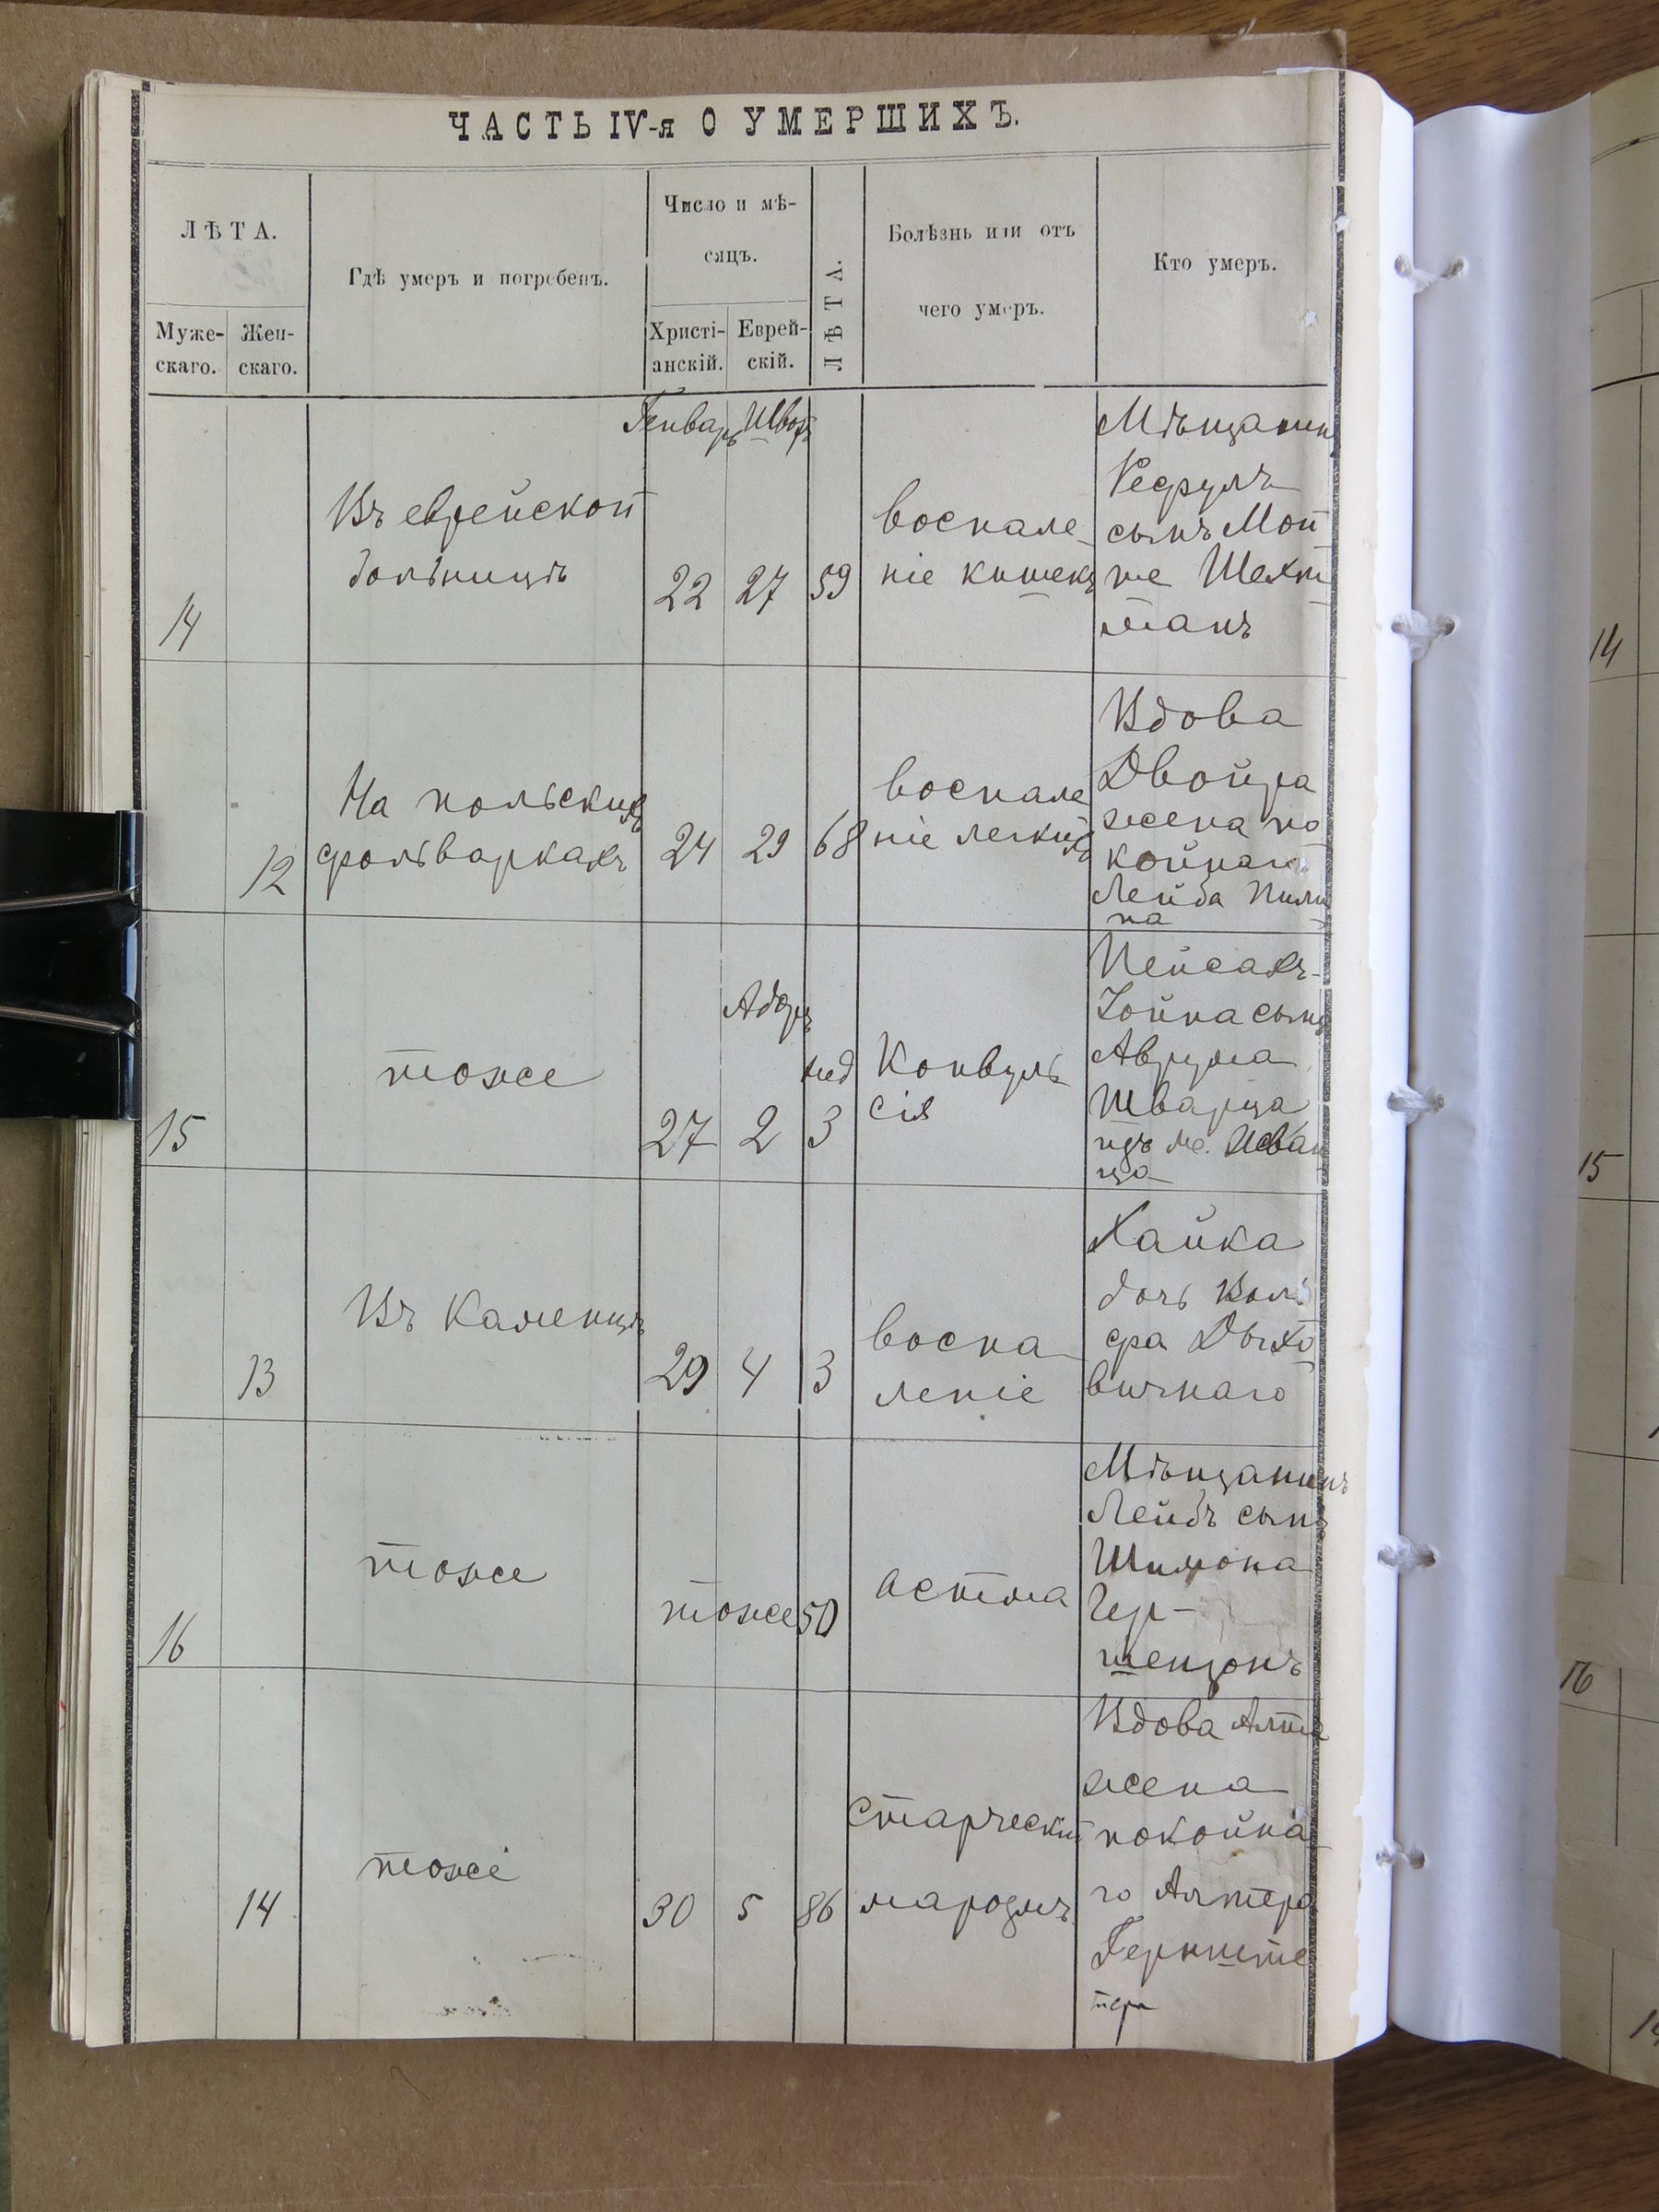 ЧАСТЬ IV-я О УМЕРШИХЪ.
ЛѢТА.
Муже-
скаго.
Жен-
скаго.
Гдѣ умеръ и погребенъ.
Число и мѣ-
сяцъ.
Христі-
анскій.
Еврей-
скій.
ЛѢТА.
Болѣзнь или отъ
чего умеръ.
Кто умеръ.
14
Въ еврейской
больницѣ
Генварь Шватъ
22 27 59
воспале
ніе кишекъ
Мѣщанинъ
Рефулъ
сынъ Мой
ше Шехт
манъ
12
На польскихъ
фольваркахъ
24 29 68
воспале
ніе легкихъ
Вдова
Двойра
жена по
койнаго
Лейба
на
15
тоже
Адаръ
27 2
нед
3
Конвуль
сія
Пейсахъ-
Іойна сынъ
Аврума
Шварца
изъ м. Исван
ца
13
Въ Каменцѣ
29 4 3
воспа
леніе
Хайка
дочь Воль
фа Дыхо
вичнаго
16
тоже
тоже 50
астма
Мѣщанинъ
Лейбъ сынъ
Шимона
Гер-
шензонъ
14
тоже
30 5 86
Старческій
маразмъ
Вдова Алта
жена
покойна
го Алтера
Гернште
тера
14
15
16
14